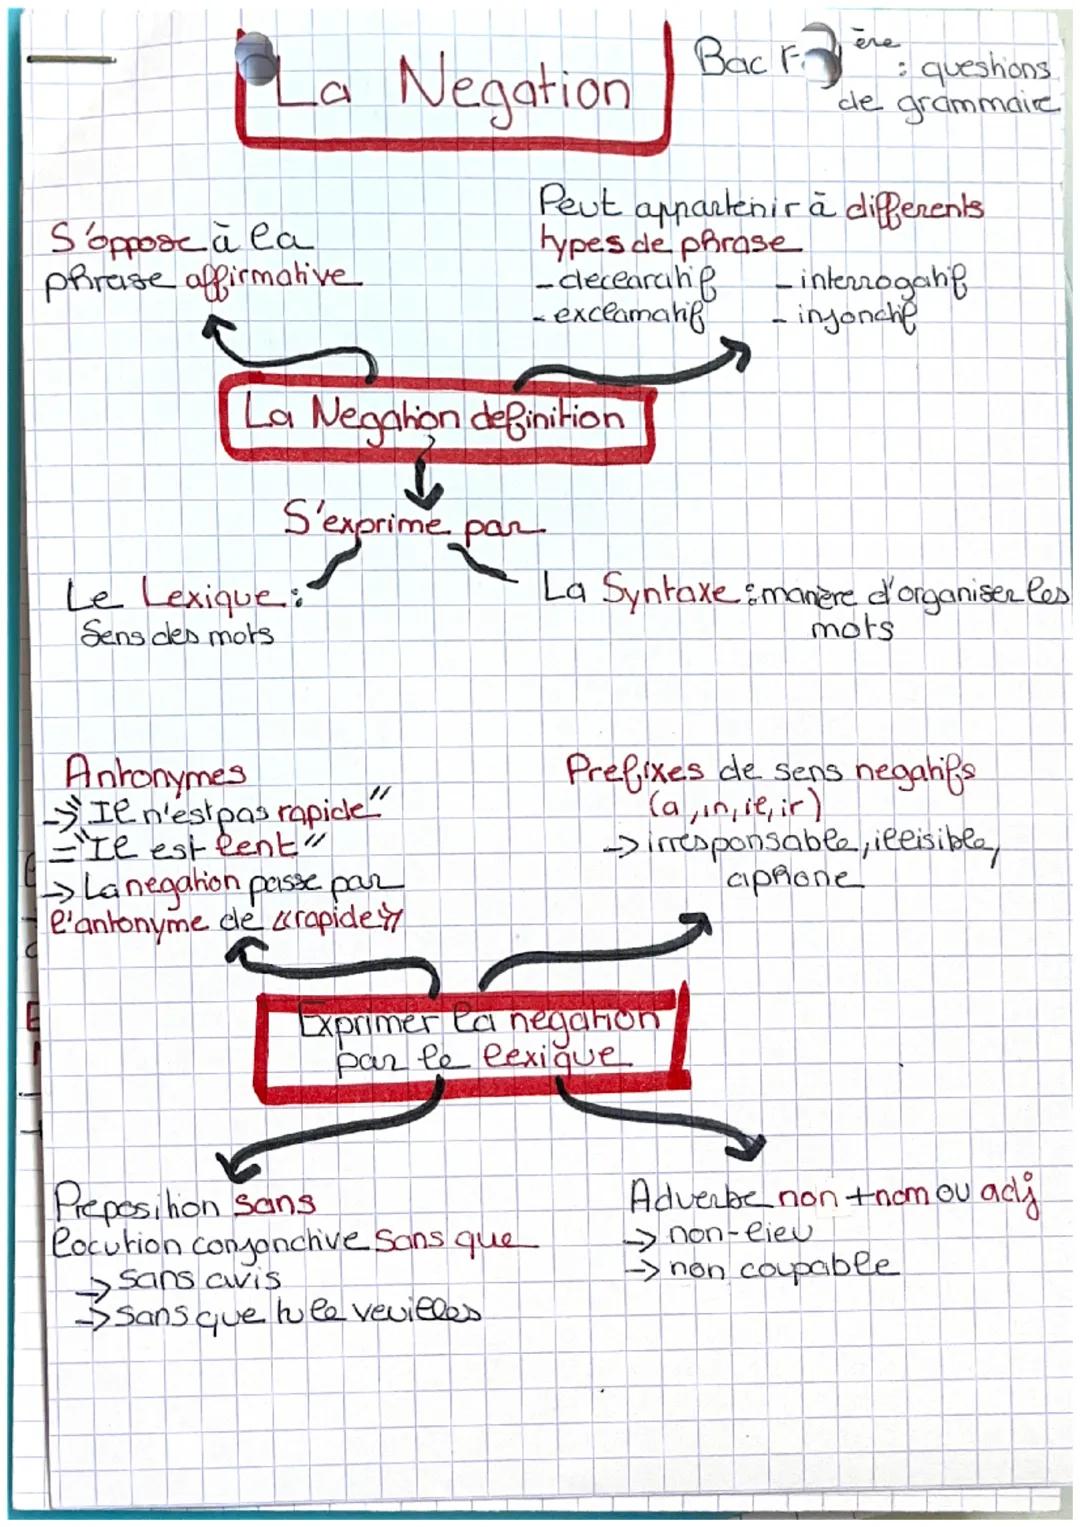 La Negation
Bac
ère
: questions
de grammaire
S'oppose à la
phrase affirmative
Peut appartenir à differents
types de phrase
- declaratif - interrogatif
- exclamatif - injonctif
La Negation definition
S'exprime par
Le Lexique :
Sens des mots
La Syntaxe : manère d'organiser les
mots
Antonymes
-> "Il n'est pas rapide"
= "Il est lent"
-> La negation passe par
l'antonyme de «rapide»
Prefixes de sens negatifs
(a, in, il, ir)
-> irresponsable, illisible,
aphone
Exprimer la negation
par le lexique
Preposition sans
locution conjonctive sans que
-> sans avis
-> sans que tu le veuilles
Adverbe non + nom ou adj
-> non-lieu
-> non coupable